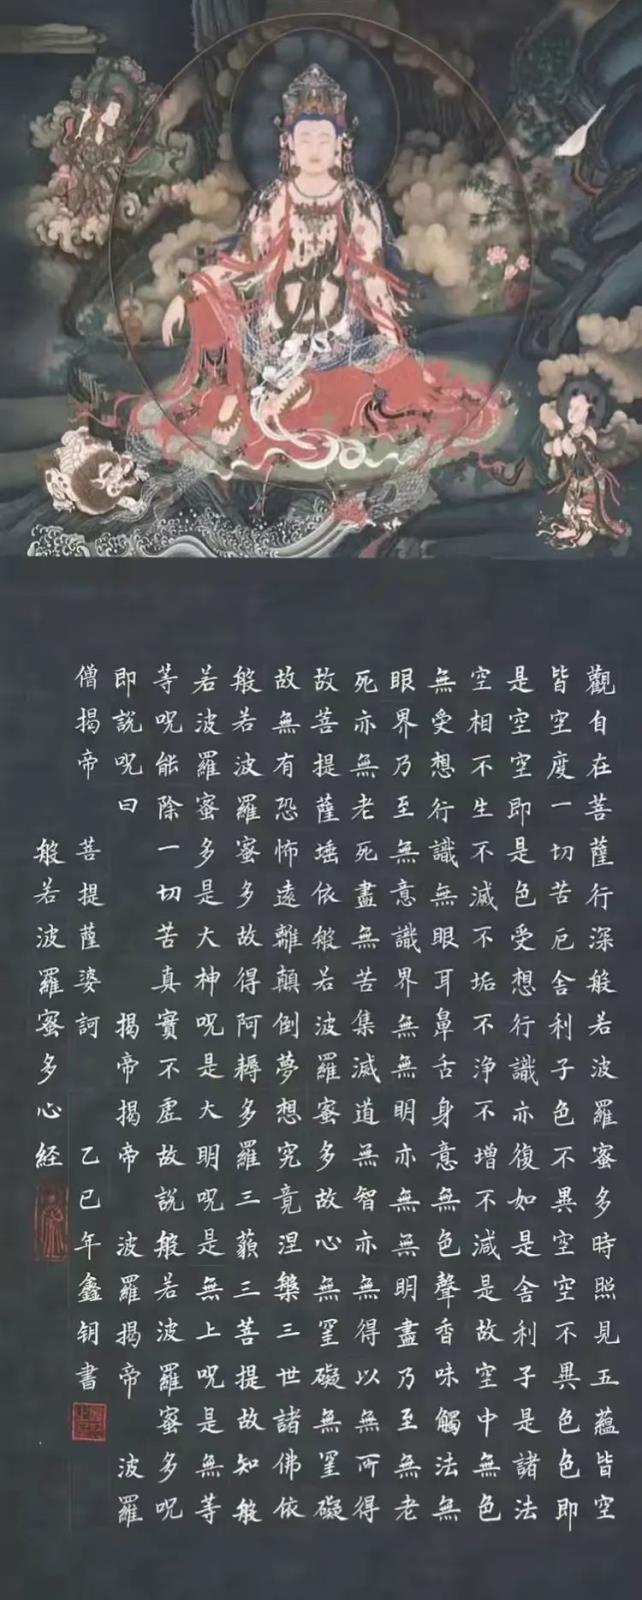 觀自在菩薩行深般若波羅蜜多時照見五蘊皆空
皆空度一切苦厄舍利子色不異空空不異色色即
是空空即是色受想行識亦復如是舍利子是諸法
空相不生不滅不垢不淨不增不減是故空中無色
無受想行識無眼耳鼻舌身意無色聲香味觸法無
眼界乃至無意識界無無明亦無無明盡乃至無老
死亦無老死盡無苦集滅道無智亦無得以無所得
故菩提薩埵依般若波羅蜜多故心無罣礙無罣礙
故無有恐怖遠離顛倒夢想究竟涅槃三世諸佛依
般若波羅蜜多故得阿耨多羅三藐三菩提故知般
若波羅蜜多是大神呪是大明呪是無上呪是無等
等呪能除一切苦真實不虛故說般若波羅蜜多呪
即說呪曰 揭帝揭帝 波羅揭帝 波羅
僧揭帝 菩提薩婆訶 乙巳年鑫钥書
般若波羅蜜多心経